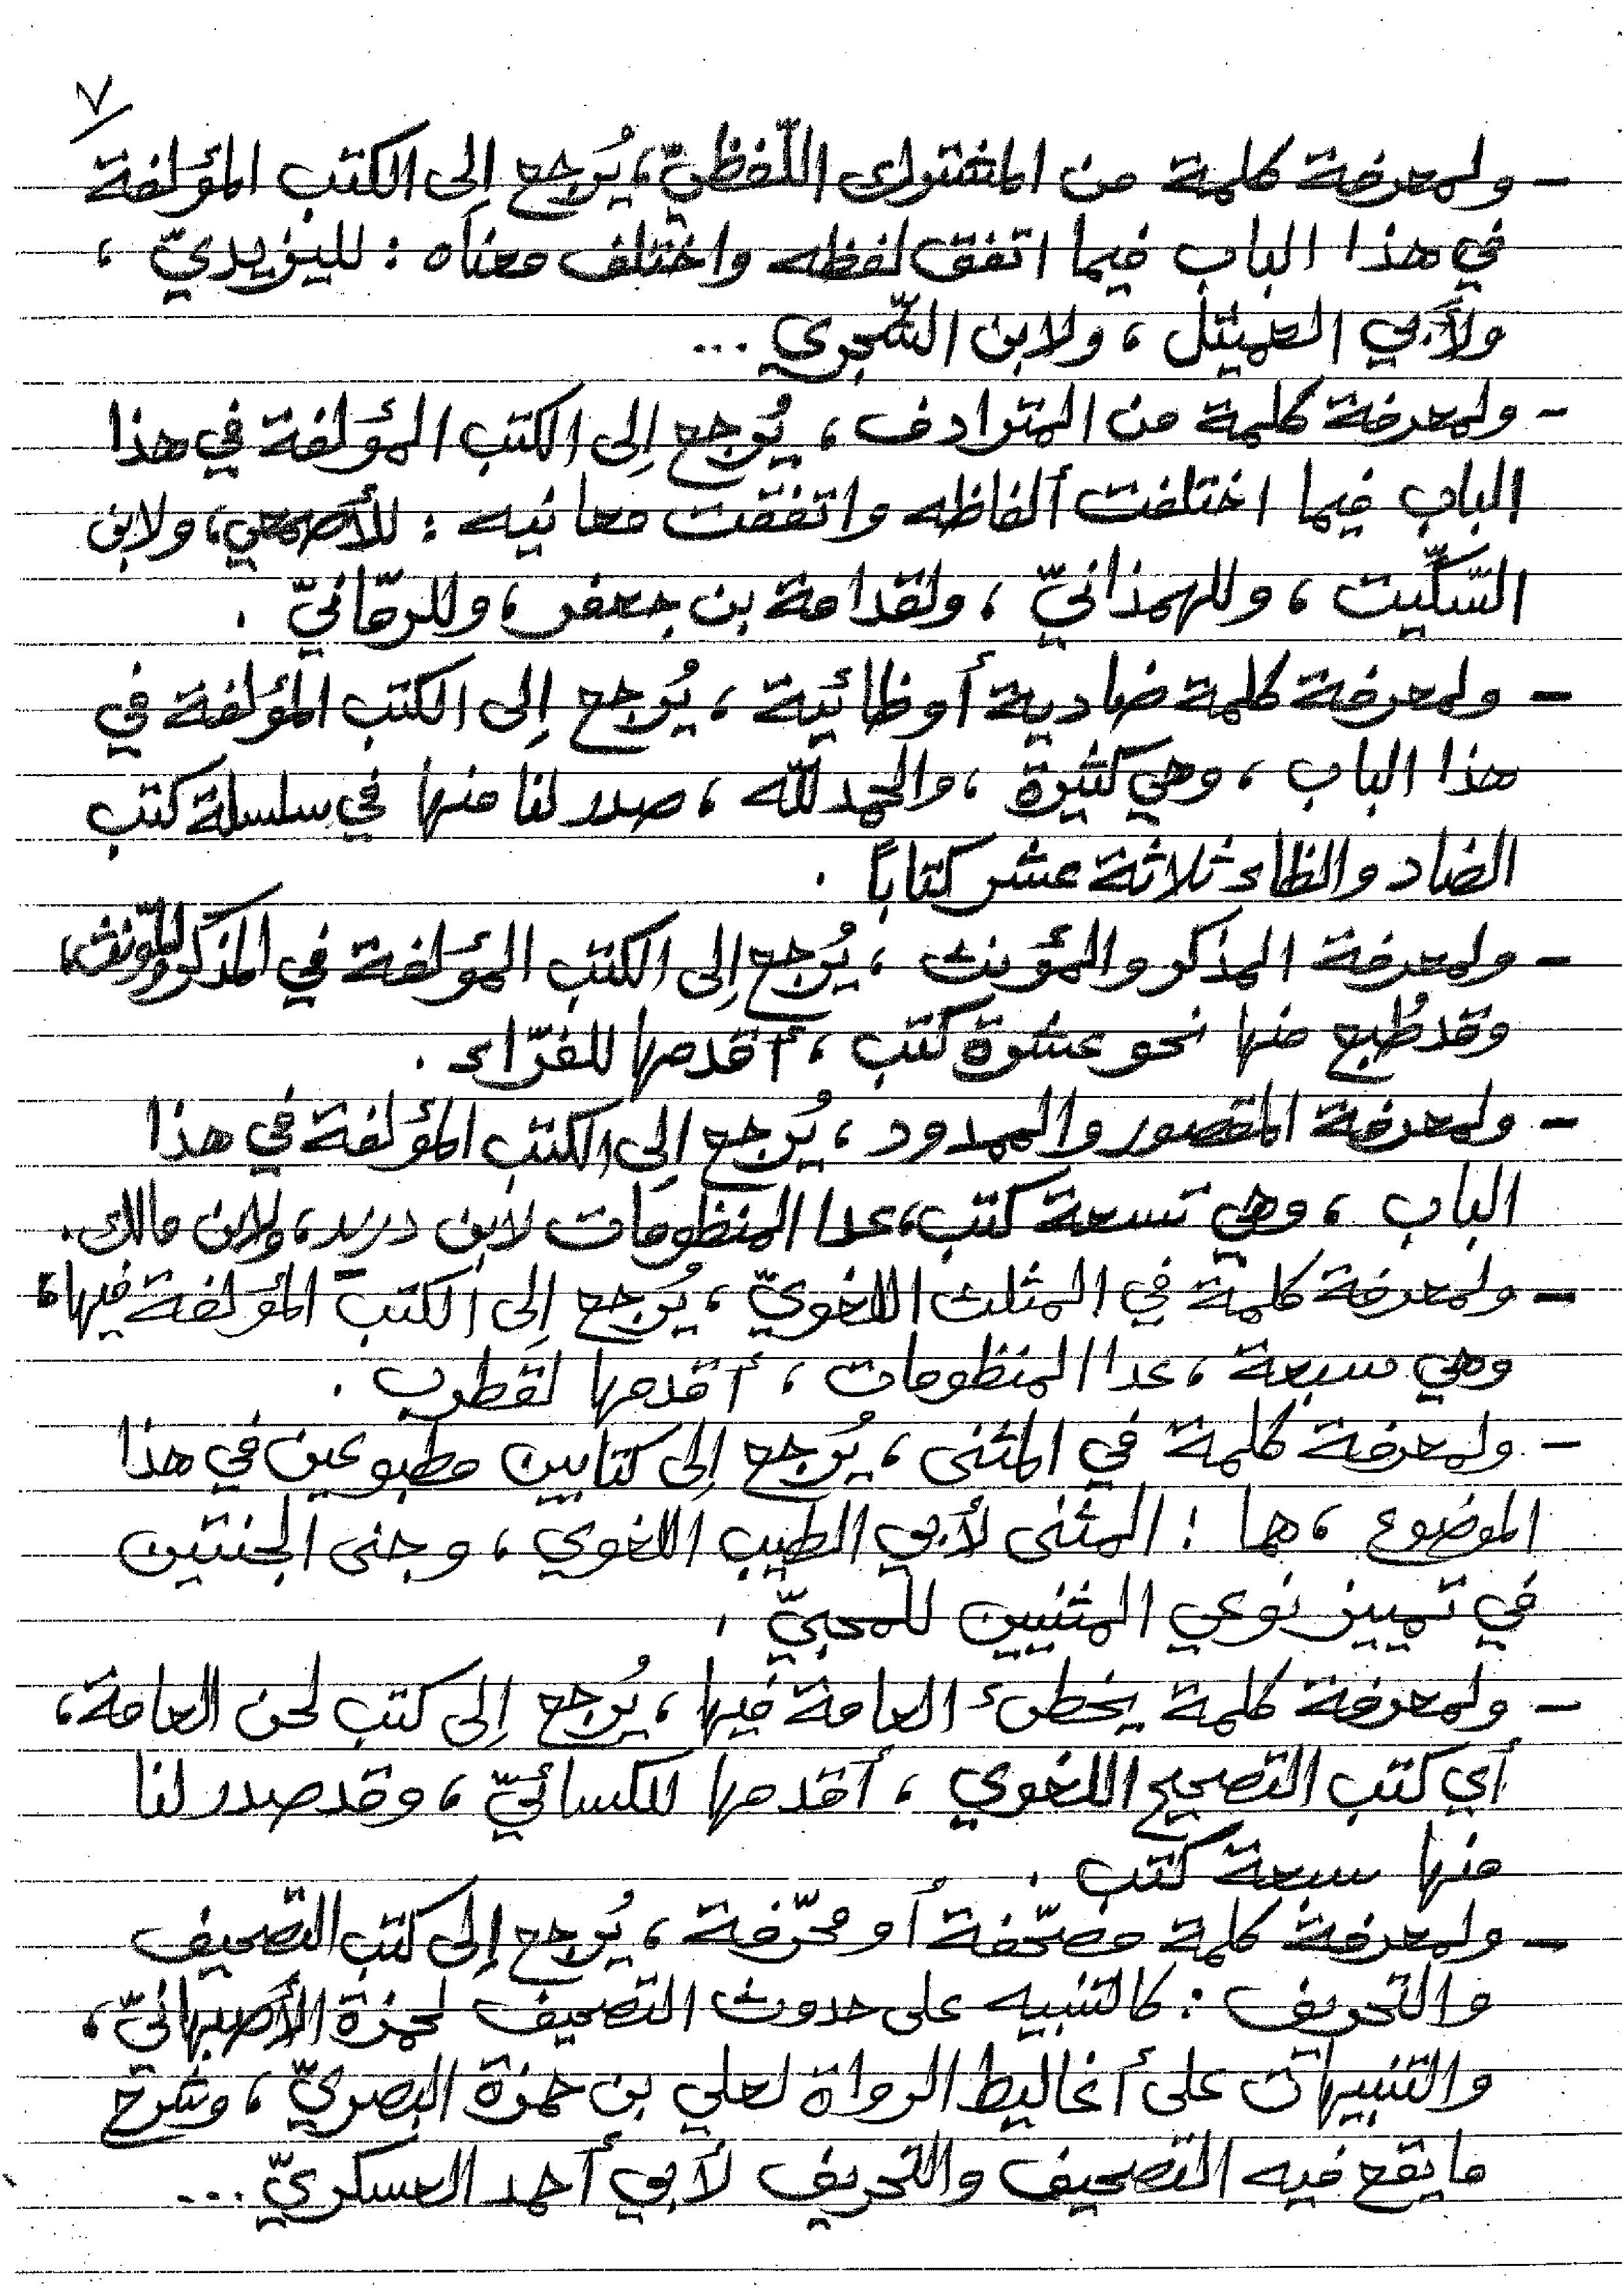 ٧
- ولمعرفة كلمة من المشترك اللّفظيّ، يُرجع إلى الكتب المؤلفة
في هذا الباب فيما اتفق لفظه واختلف معناه : لليزيديّ ،
ولأبي العميثل ، ولابن الشّجري ...
- ولمعرفة كلمة من المترادف ، يُرجع إلى الكتب المؤلفة في هذا
الباب فيما اختلفت ألفاظه واتفقت معانيه : للأصمعي، ولابن
السّكّيت ، وللهمذانيّ ، ولقدامة بن جعفر ، وللرمّانيّ .
- ولمعرفة كلمة ضادية أو ظائية ، يُرجع إلى الكتب المؤلفة في
هذا الباب ، وهي كثيرة ، والحمد للّه ، صدر لنا منها في سلسلة كتب
الضاد والظاء ثلاثة عشر كتابًا .
- ولمعرفة المذكر والمؤنث ، يُرجع إلى الكتب المؤلفة في المذكر والمؤنث،
وقد طُبع منها نحو عشرة كتب ، أقدمها للفرّاء .
- ولمعرفة المقصور والممدود ، يُرجع إلى الكتب المؤلفة في هذا
الباب ، وهي تسعة كتب، عدا المنظومات لابن دريد، ولابن مالك.
- ولمعرفة كلمة في المثلث اللغويّ ، يُرجع إلى الكتب المؤلفة فيها،
وهي سبعة ، عدا المنظومات ، أقدمها لقطرب .
- ولمعرفة كلمة في المثنى ، يُرجع إلى كتابين مطبوعين في هذا
الموضوع ، هما : المثنى لأبي الطيب اللغوي ، وجنى الجنتين
في تمييز نوعي المثنيين للمحبيّ .
- ولمعرفة كلمة يخطئ العامة فيها ، يُرجع إلى كتب لحن العامة،
أي كتب التصحيح اللغوي ، أقدمها للكسائيّ ، وقد صدر لنا
منها سبعة كتب .
- ولمعرفة كلمة مصحّفة أو محرّفة ، يُرجع إلى كتب التصحيف
والتحريف : كالتنبيه على حدوث التصحيف لحمزة الأصبهانيّ ،
والتنبيهات على أغاليط الرواة لعلي بن حمزة البصريّ ، وشرح
ما يقع فيه التصحيف والتحريف لأبي أحمد العسكريّ ...